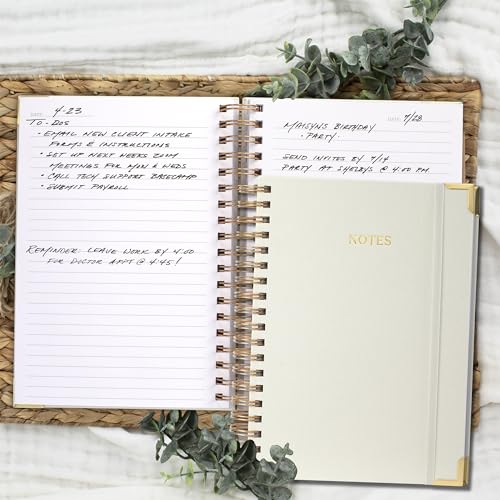 DATE: 4-23
TO-DOS
• EMAIL NEW CLIENT INTAKE
FORMS & INSTRUCTIONS
• SET UP NEXT WEEKS ZOOM
MEETINGS FOR MON & WEDS
• CALL TECH SUPPORT BASECAMP
• SUBMIT PAYROLL
REMINDER: LEAVE WORK BY 4:00
FOR DOCTOR APPT @ 4:45!
DATE: 7/28
MAISYNS BIRTHDAY
• PARTY •
SEND INVITES BY 7/14
PARTY AT SHELBYS @ 4:00 PM
NOTES